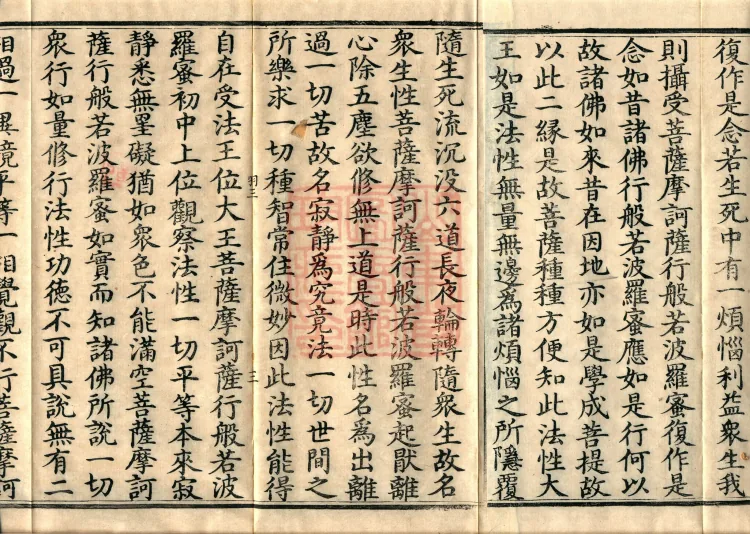 復作是念若生死中有一煩惱利益衆生我
則攝受菩薩摩訶薩行般若波羅蜜復作是
念如昔諸佛行般若波羅蜜應如是行何以
故諸佛如來昔在因地亦如是學成菩提故
以此二緣是故菩薩種種方便知此法性大
王如是法性無量無邊為諸煩惱之所隱覆
隨生死流沉没六道長夜輪轉隨衆生故名
衆生性菩薩摩訶薩行般若波羅蜜起猒離
心除五塵欲修無上道是時此性名為出離
過一切苦故名寂靜為究竟法一切世間之
所樂求一切種智常住微妙因此法性能得
羽三
三
自在受法王位大王菩薩摩訶薩行般若波
羅蜜初中上位觀察法性一切平等本來寂
靜悉無罣礙猶如衆色不能滿空菩薩摩訶
薩行般若波羅蜜如實而知諸佛所說一切
衆行如量修行法性功德不可具說無有二
相過一異境平等一相覺觀不行菩薩摩訶